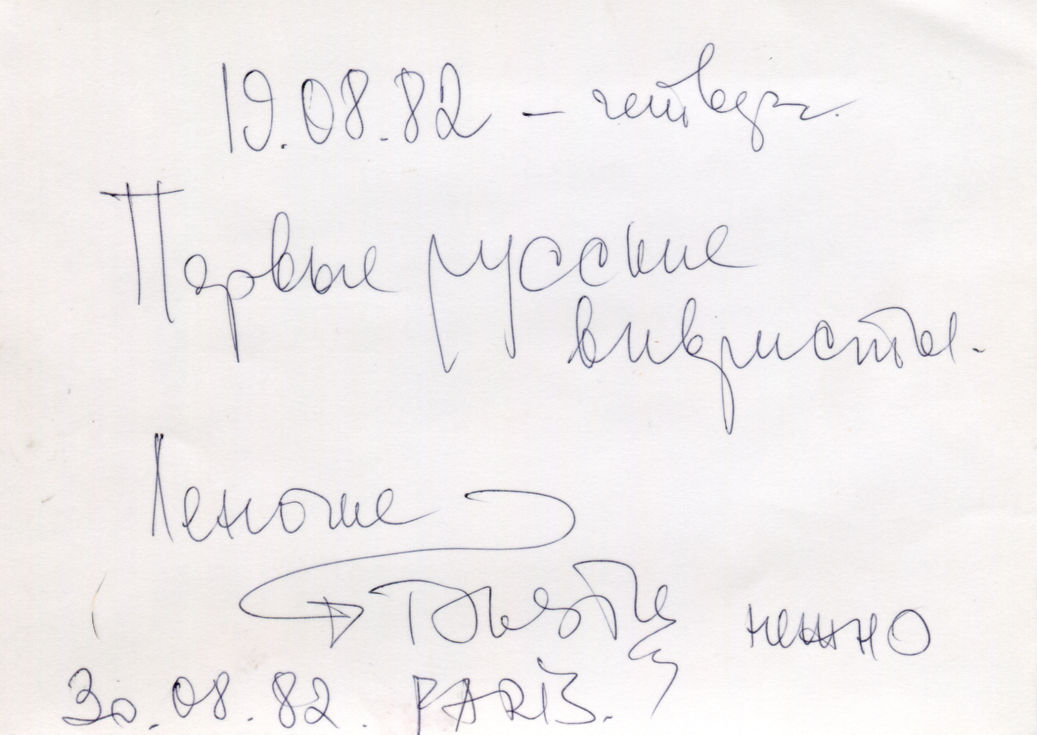 19.08.82 – четверг.
Первые русские
вивристы.
Леноше
нежно
30.08.82. PARIS.